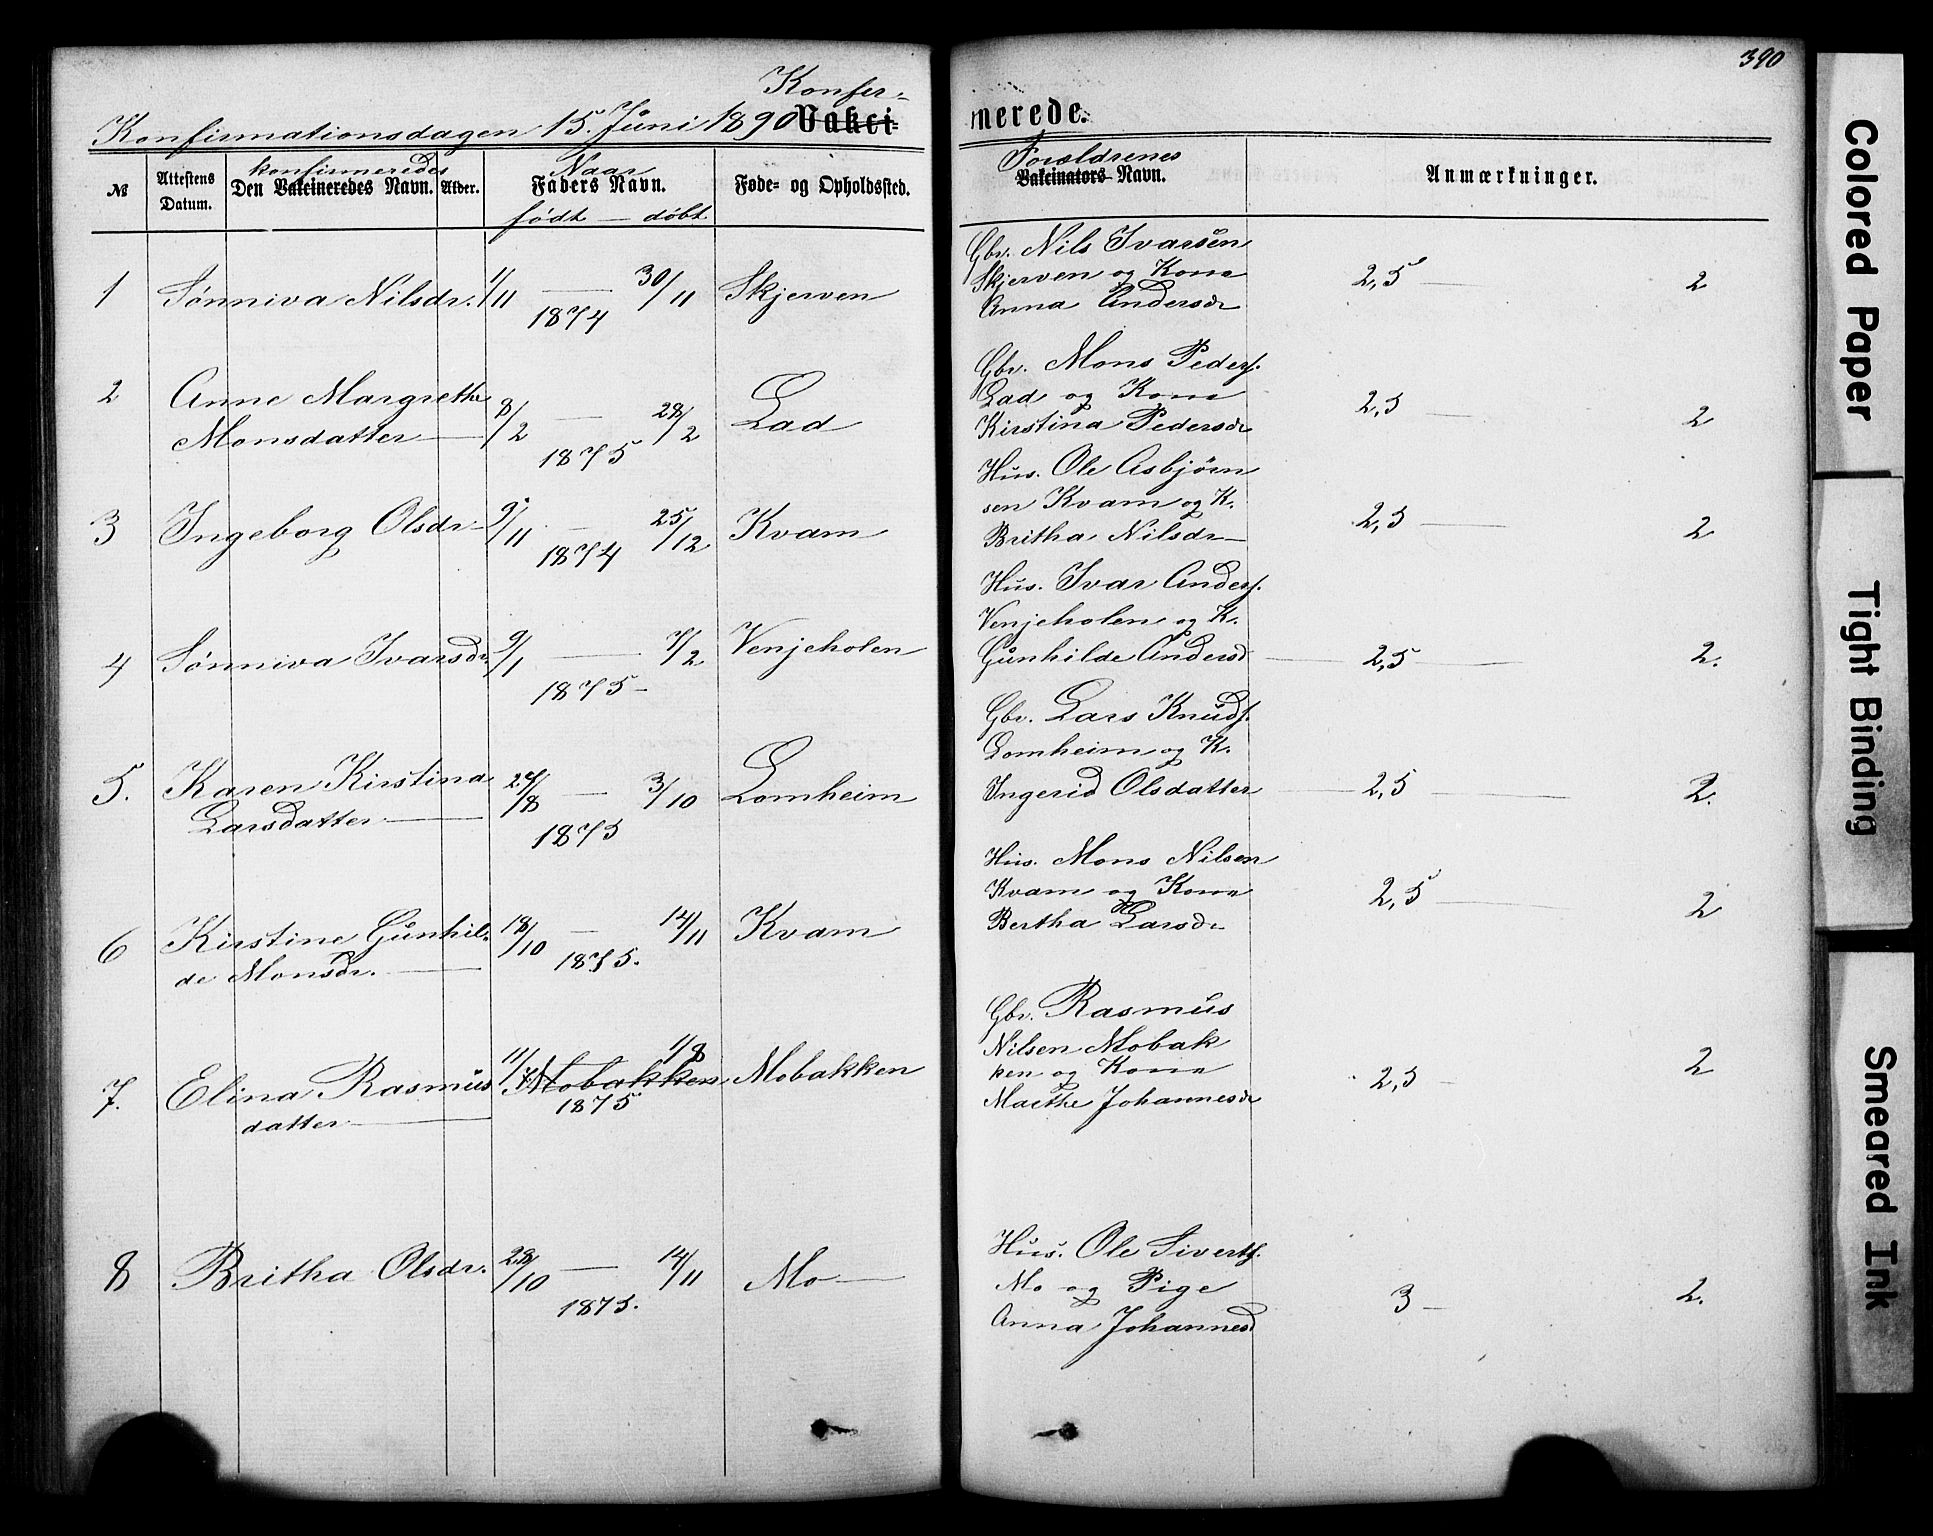 390
Konfer-
Konfirmationsdagen 15. Juni 1890 Vakci-
nerede.
№
Attestens Datum.
konfirmeredes
Den Vakcineredes Navn.
Alder.
Naar
Faders Navn.
født — døbt
Føde- og Opholdssted.
Forældrenes
Vakcinators Navn.
Anmærkninger.
1 Sønniva Nilsdr. 1/11 — 30/11 Skjerven
1874
Gbr. Nils Ivarsen
Skjerven og Kone
Anna Andersdr
2,5 — 2
2 Anne Margrethe
Monsdatter — 8/2 — 28/2 Lad
1875
Gbr. Mons Peders.
Lad og Kone
Kirstina Pedersdr
2,5 — 2
3 Ingeborg Olsdr — 9/11 — 25/12 Kvam
1874
Hus. Ole Asbjørn
sen Kvam og K.
Britha Nilsdr —
2,5 — 2
4 Sønniva Ivarsdr. 9/1 — 7/2 Venjeholen
1875 —
Hus. Ivar Anders.
Venjeholen og K.
Gunhilde Andersd — 2,5 — 2.
5. Karen Kirstina
Larsdatter — 27/8 — 3/10 Lomheim
1875
Gbr. Lars Knuds.
Lomheim og K.
Ingerid Olsdatter — 2,5 — 2.
6 Kirstine Gunhil-
de Monsdr. — 18/10 — 14/11 Kvam
1875.
Hus. Mons Nilsen
Kvam og Kone
Bertha Larsdr
2,5 — 2
7. Elina Rasmus
datter — 11/7 Mobakken 1/8 Mobakken
1875
Gbr. Rasmus
Nilsen Mobak
ken og Kone
Marthe Johannesdr
2,5 — 2
8 Britha Olsdr. 28/10 — 14/11 Mo —
1875.
Hus. Ole Siverts.
Mo og Pige
Anna Johannesd
3 — 2.
Colored Paper
Tight Binding
Smeared Ink